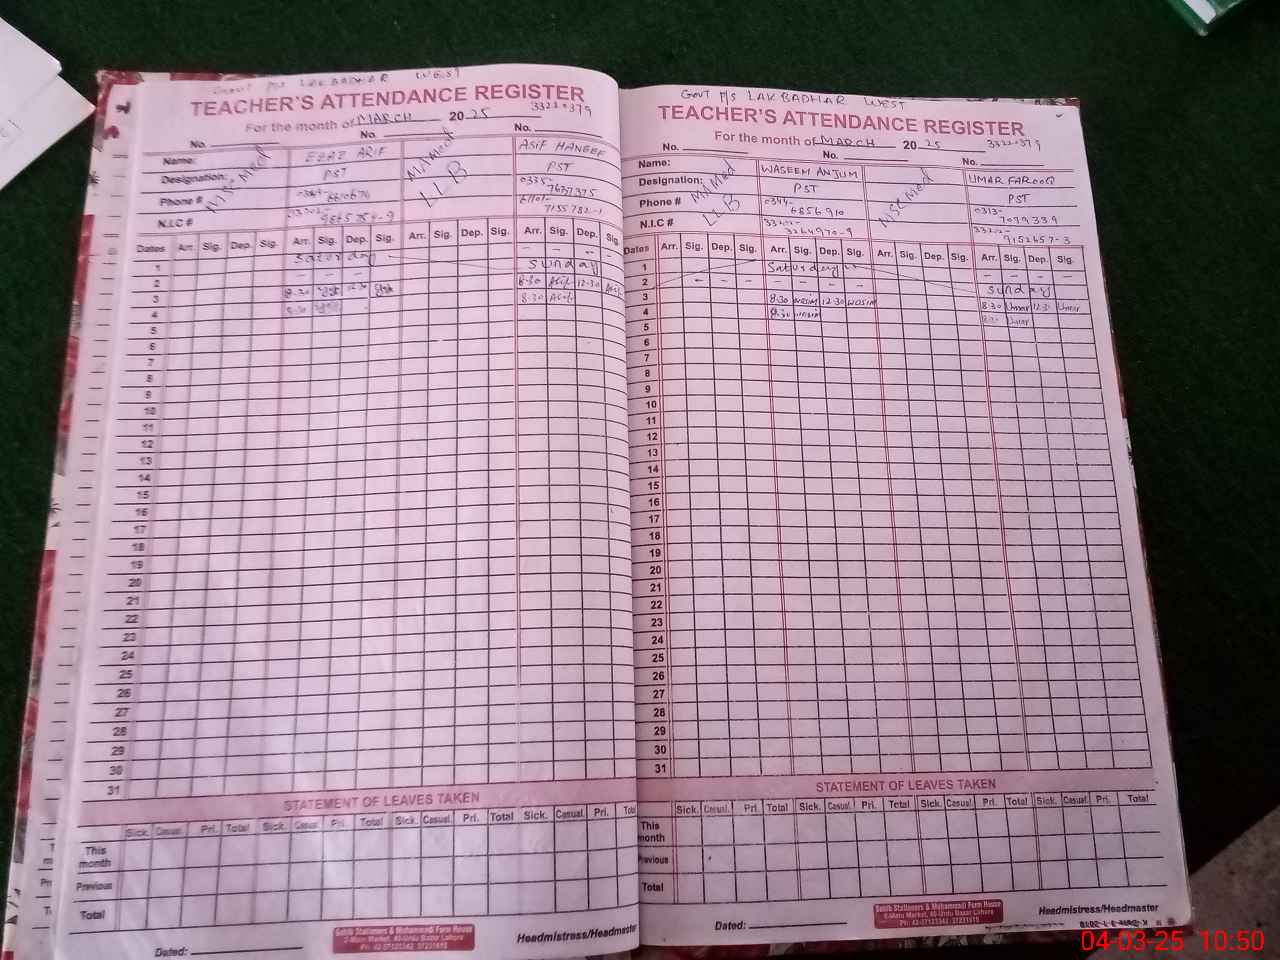 GOVT P/S LAK BADHAR WEST
TEACHER'S ATTENDANCE REGISTER
For the month of MARCH 2025 33220379
No. No. No.
Name: EJAZ ARIF ASIF HANEEF
Designation: PST PST
Phone # 0335-7637375
N.I.C # 61101-7155782-1
MAMed LLB
Dates Arr. Sig. Dep. Sig. Arr. Sig. Dep. Sig. Arr. Sig. Dep. Sig. Arr. Sig. Dep. Sig.
1 Saturday Sunday
2 - - - -
3 8:30 12:30 8:30 Asif 12:30 Asif
4 8:30 8:30 Asif
5
6
7
8
9
10
11
12
13
14
15
16
17
18
19
20
21
22
23
24
25
26
27
28
29
30
31
STATEMENT OF LEAVES TAKEN
Sick. Casual. Pri. Total Sick. Casual. Pri. Total Sick. Casual. Pri. Total Sick. Casual. Pri. Total
This month
Previous
Total
Dated:
Sahib Stationers & Muhammadi Form House
2-Main Market, 40-Urdu Bazar Lahore
Ph: 42-37123342, 37231615
Headmistress/Headmaster
GOVT P/S LAK BADHAR WEST
TEACHER'S ATTENDANCE REGISTER
For the month of MARCH 2025 33220379
No. No. No.
Name: WASEEM ANJUM UMAR FAROOQ
Designation: PST PST
Phone # 0344-6856910 0313-7079339
N.I.C # 33202-3264970-9 33202-9152657-3
MAMed LLB
MSC Med
Dates Arr. Sig. Dep. Sig. Arr. Sig. Dep. Sig. Arr. Sig. Dep. Sig. Arr. Sig. Dep. Sig.
1 Saturday
2 - - - - - - - - Sunday
3 8:30 wasim 12:30 wasim 8:30 Umar 12:30 Umar
4 8:30 wasim 8:30 Umar
5
6
7
8
9
10
11
12
13
14
15
16
17
18
19
20
21
22
23
24
25
26
27
28
29
30
31
STATEMENT OF LEAVES TAKEN
Sick. Casual. Pri. Total Sick. Casual. Pri. Total Sick. Casual. Pri. Total Sick. Casual. Pri. Total
This month
Previous
Total
Dated:
Sahib Stationers & Muhammadi Form House
2-Main Market, 40-Urdu Bazar Lahore
Ph: 42-37123342, 37231615
Headmistress/Headmaster
04-03-25 10:50